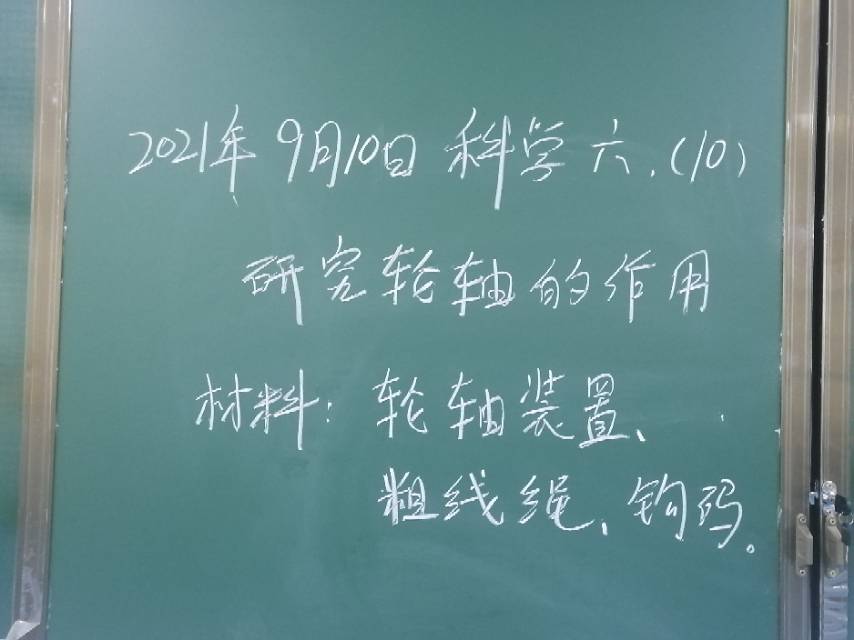 2021年9月10日 科学 六.(10)
研究轮轴的作用
材料：轮轴装置、
粗线绳、钩码。